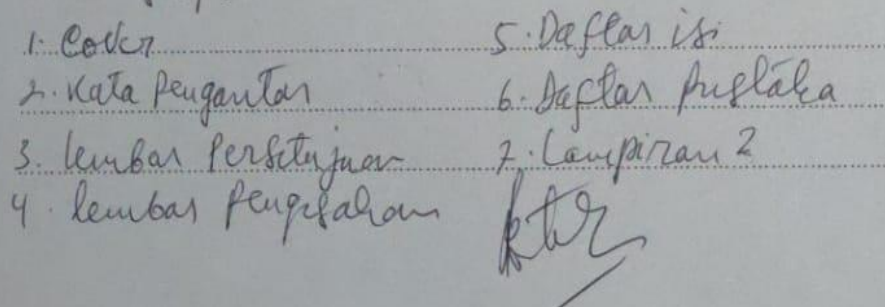 1. Cover
2. Kata Pengantar
3. lembar Persetujuan
4. lembar Pengesahan
5. Daftar isi
6. Daftar Pustaka
7. Lampiran 2